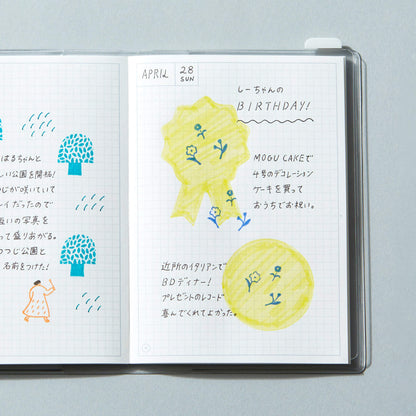 はるちゃんと
しい公園を開拓!
つじが咲いていて
レイだったので
互いの写真を
って盛りあがる。
つつじ公園と
名前をつけた!
APRIL 28
SUN
しーちゃんの
BIRTHDAY!
MOGU CAKEで
4号のデコレーション
ケーキを買って
おうちでお祝い。
近所のイタリアンで
BDディナー!
プレゼントのレコード
喜んでくれてよかった。